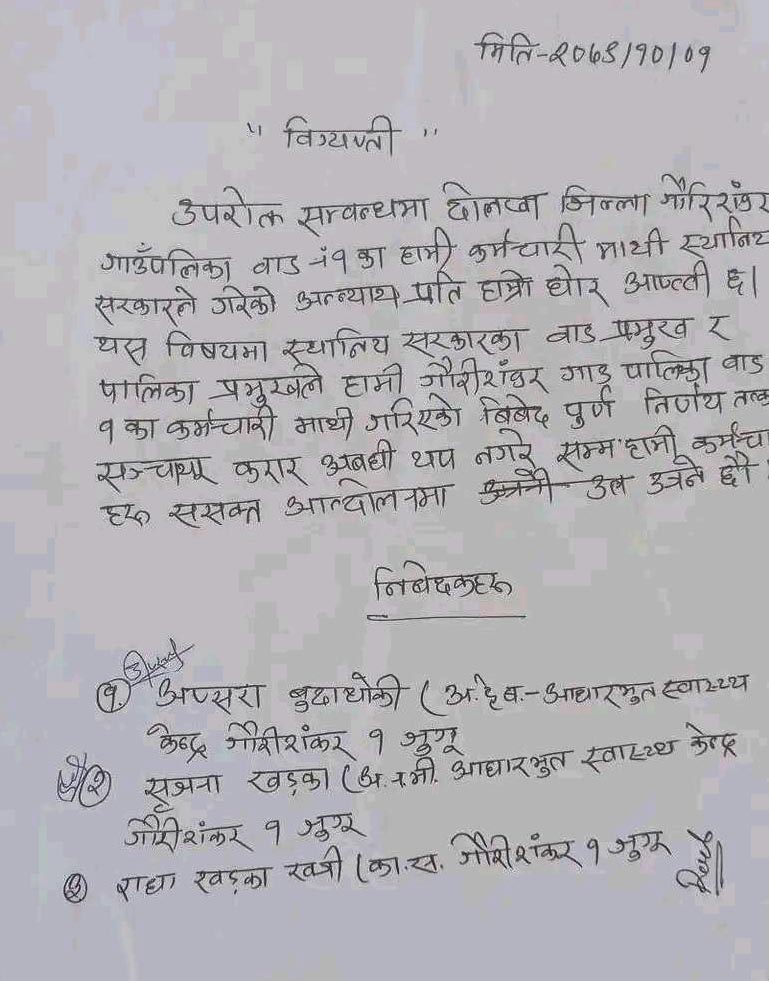 मिति-२०७९/१०/०१
" विग्यप्ती "
उपरोक्त सम्वन्धमा दोलखा जिल्ला गौरिशंकर
गाउँपालिका वाड नं १ का हामी कर्मचारी माथी स्थानिय
सरकारले गरेको अन्न्याय प्रति हाम्रो घोर आपत्ती छ।
यस विषयमा स्थानिय सरकारका वाड प्रमुख र
पालिका प्रमुखले हामी गौरीशंकर गाउ पालिका वाड
१ का कर्मचारी माथी गरिएको बिबेद पुर्ण निर्णय
करार अबधी थप नगरे सम्म हामी
हरु ससक्त आन्दोलनमा उत्रने छौ।
निबेदकहरु
१. अप्सरा बुढाथोकी (अ.हे.ब.- आधारभुत स्वास्थ्य
केन्द्र गौरीशंकर १ जुगू
२ सृजना खड्का (अ.न.मी. आधारभुत स्वास्थ्य केन्द्र
गौरीशंकर १ जुगू
३ राधा खड्का खत्री (का.स. गौरीशंकर १ जुगू